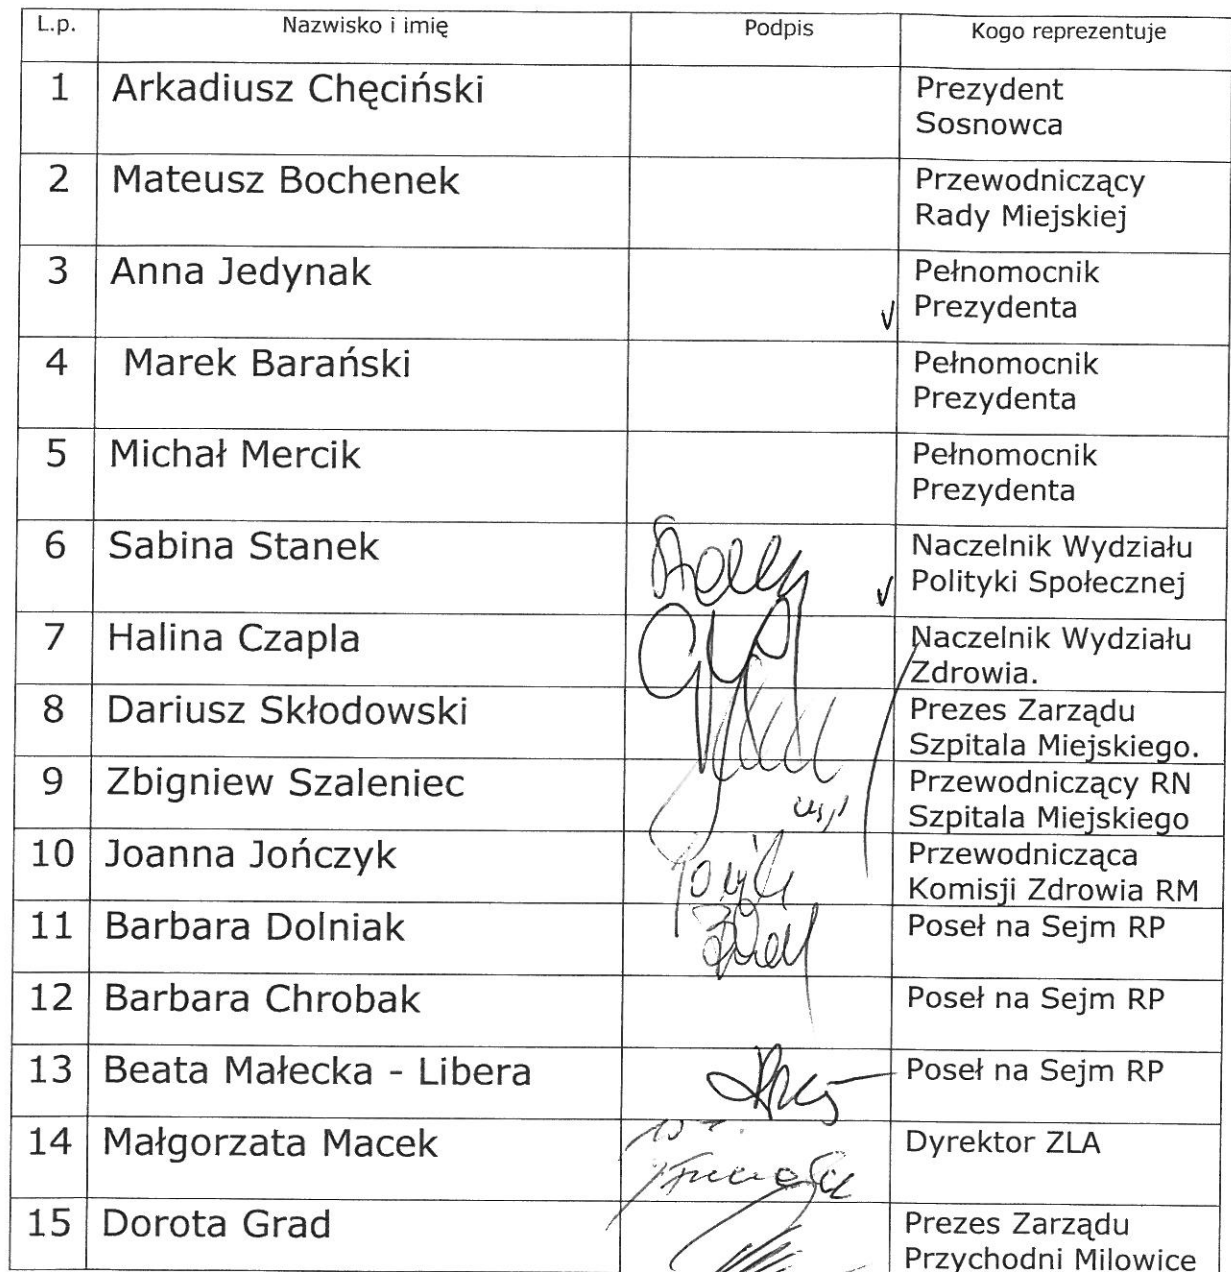 L.p. Nazwisko i imię Podpis Kogo reprezentuje
1 Arkadiusz Chęciński Prezydent
Sosnowca
2 Mateusz Bochenek Przewodniczący
Rady Miejskiej
3 Anna Jedynak Pełnomocnik
Prezydenta
4 Marek Barański Pełnomocnik
Prezydenta
5 Michał Mercik Pełnomocnik
Prezydenta
6 Sabina Stanek Naczelnik Wydziału
Polityki Społecznej
7 Halina Czapla Naczelnik Wydziału
Zdrowia.
8 Dariusz Skłodowski Prezes Zarządu
Szpitala Miejskiego.
9 Zbigniew Szaleniec Przewodniczący RN
Szpitala Miejskiego
10 Joanna Jończyk Przewodnicząca
Komisji Zdrowia RM
11 Barbara Dolniak Poseł na Sejm RP
12 Barbara Chrobak Poseł na Sejm RP
13 Beata Małecka - Libera Poseł na Sejm RP
14 Małgorzata Macek Dyrektor ZLA
15 Dorota Grad Prezes Zarządu
Przychodni Milowice